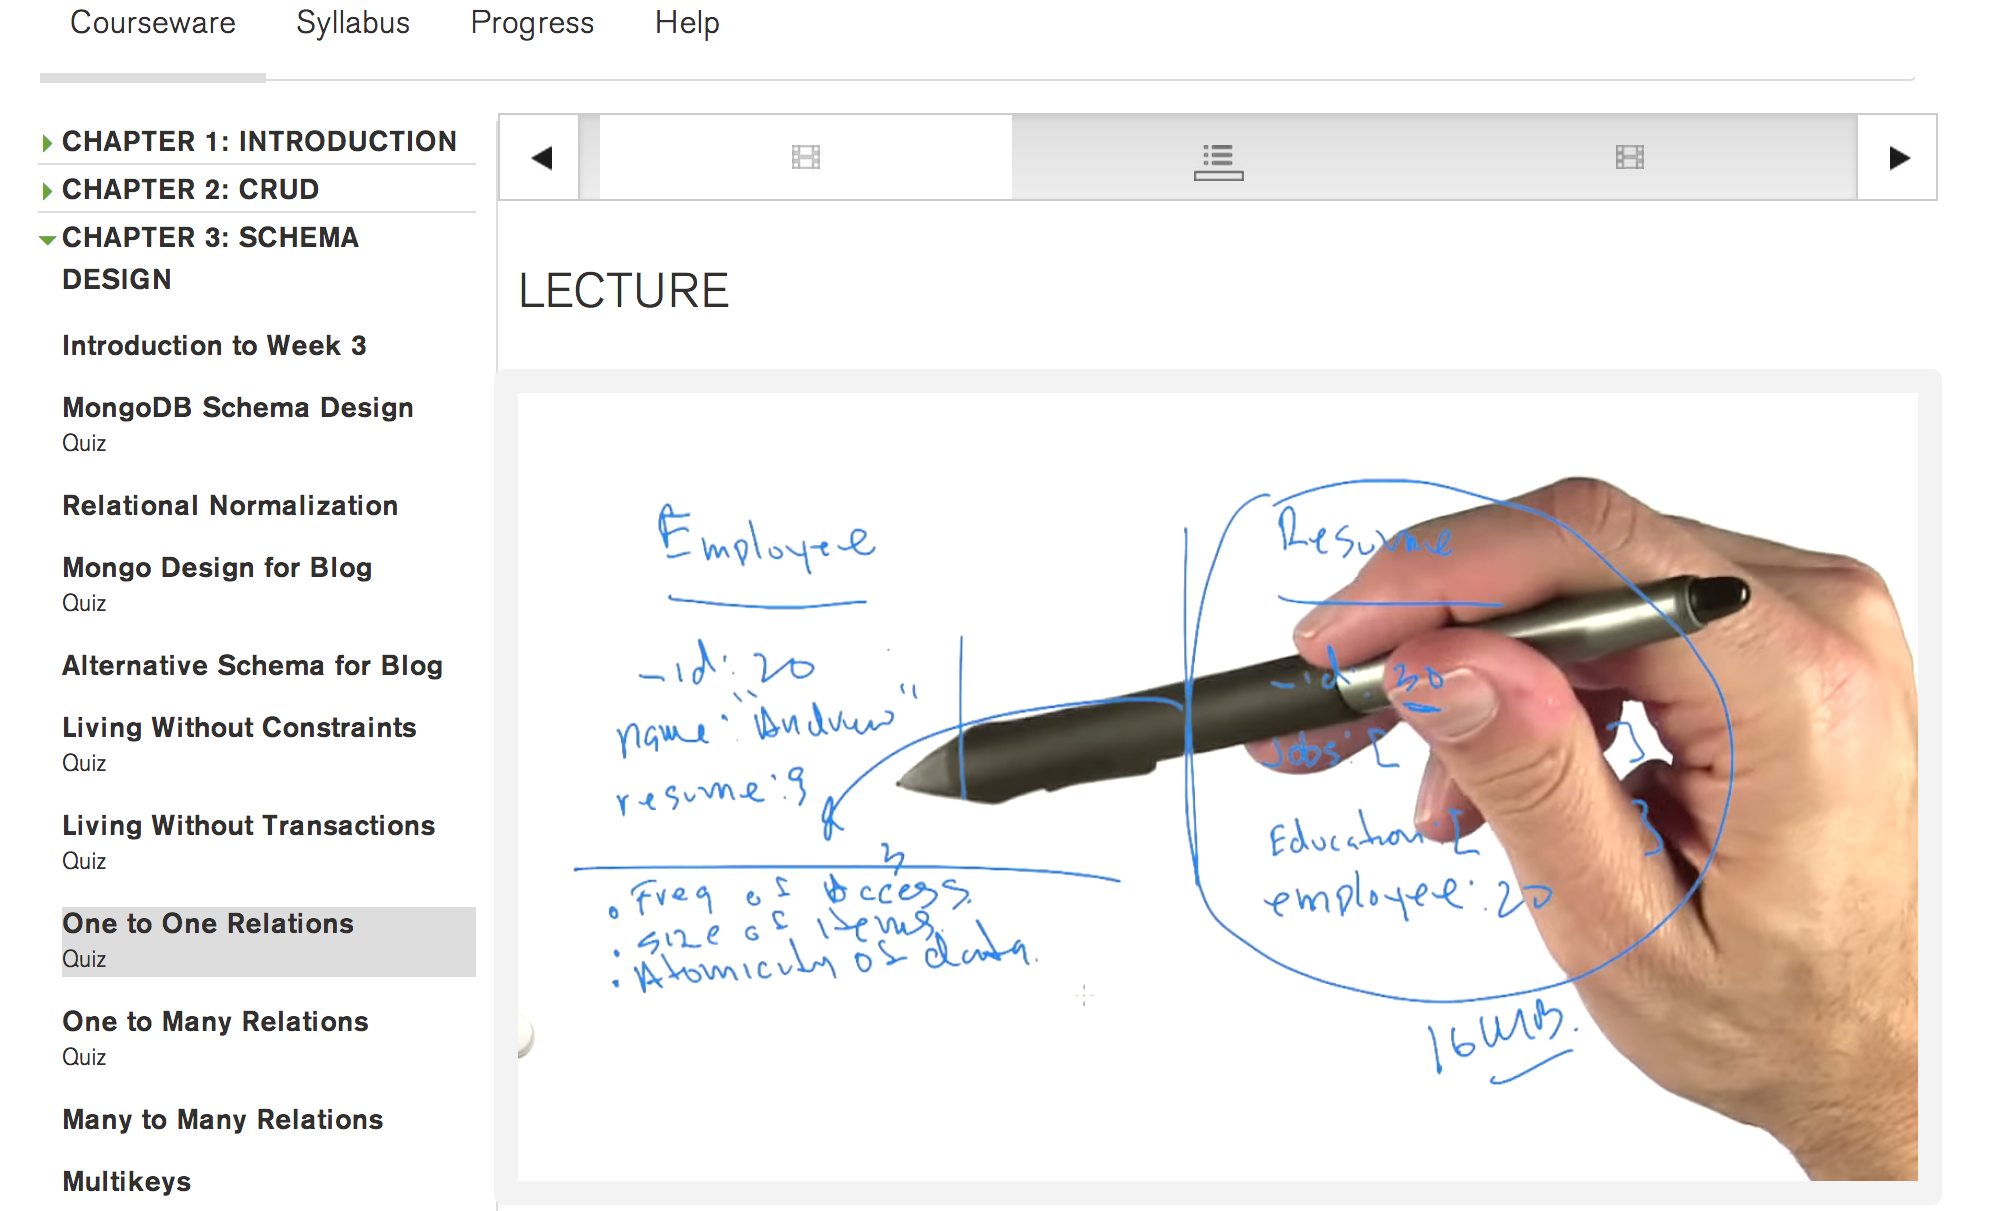 Courseware Syllabus Progress Help
CHAPTER 1: INTRODUCTION
CHAPTER 2: CRUD
CHAPTER 3: SCHEMA
DESIGN
Introduction to Week 3
MongoDB Schema Design
Quiz
Relational Normalization
Mongo Design for Blog
Quiz
Alternative Schema for Blog
Living Without Constraints
Quiz
Living Without Transactions
Quiz
One to One Relations
Quiz
One to Many Relations
Quiz
Many to Many Relations
Multikeys
LECTURE
Employee
_id: 20
name: "Andrew"
resume:
• Freq of Access.
• Size of items.
• Atomicity of data.
Resume
_id: 30
Jobs: [ ]
Education: [ ]
employee: 20
16MB.